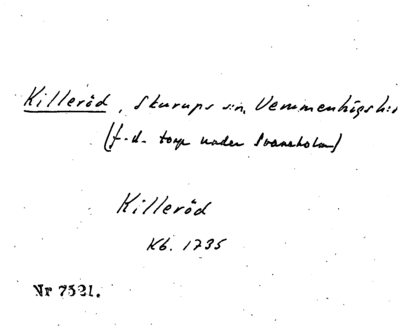 Killeröd, Skurups s:n, Vemmenhögs h:d
(f.d. torp under Svaneholm)
Killeröd
Kb. 1735
Nr 7321.